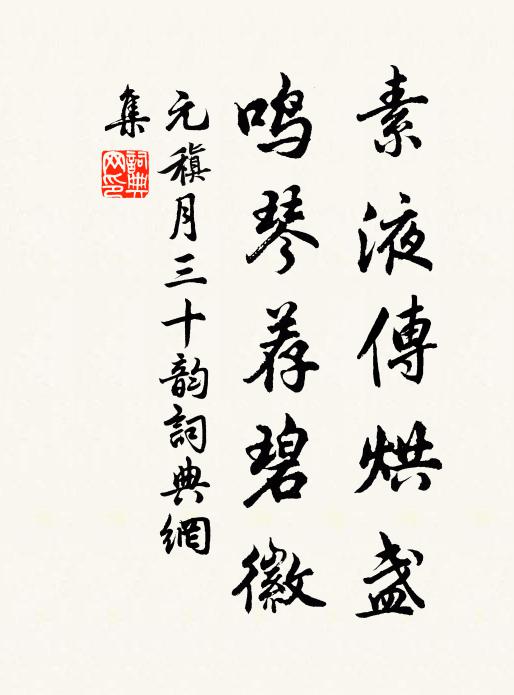 素液傳烘盞
鳴琴荐碧徽
元稹月三十韵詞典網
集
詞典网印